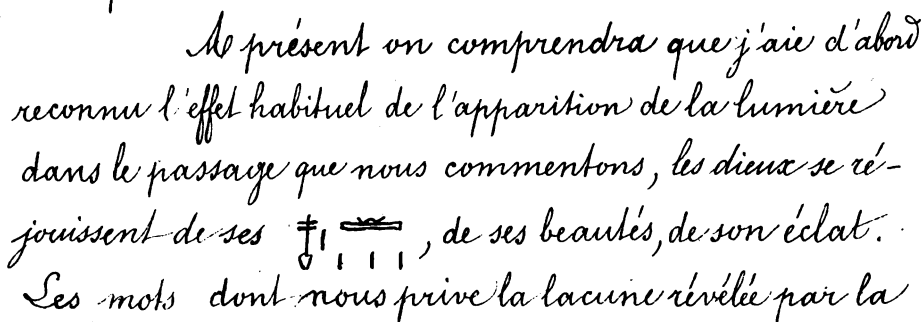 A présent on comprendra que j'aie d'abord
reconnu l'effet habituel de l'apparition de la lumière
dans le passage que nous commentons, les dieux se ré-
jouissent de ses , de ses beautés, de son éclat.
Les mots dont nous prive la lacune révélée par la